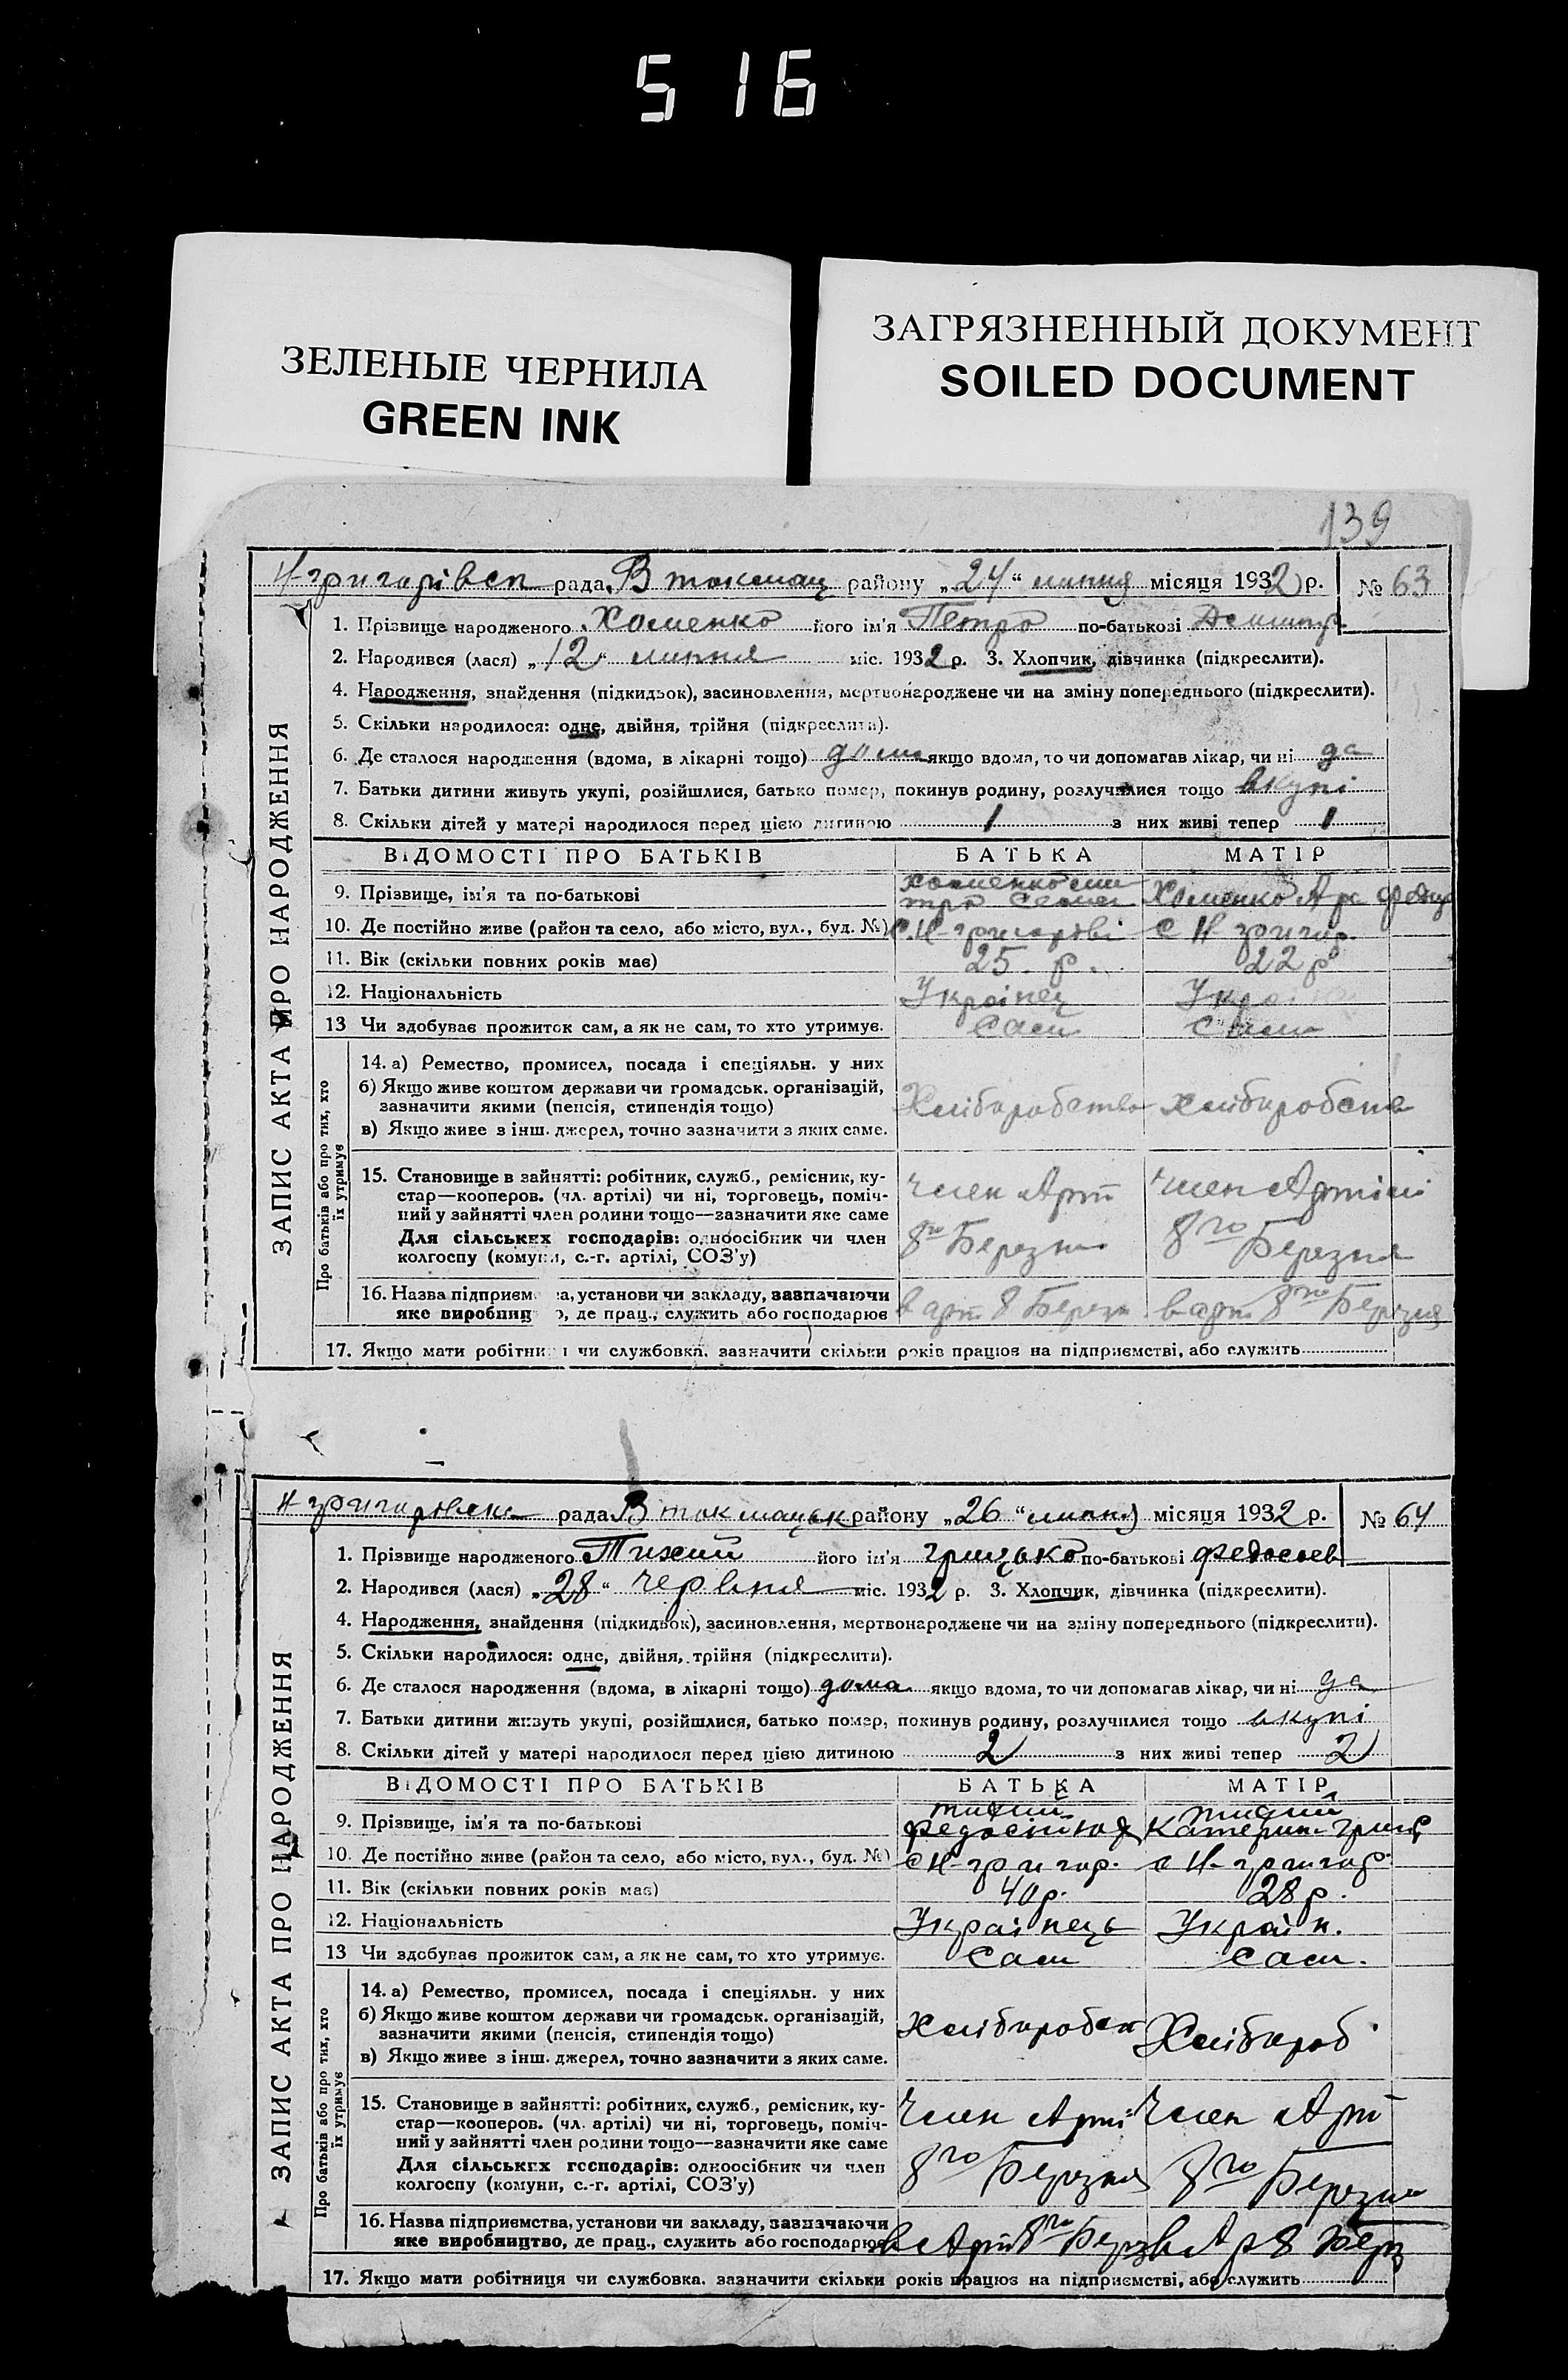 516
ЗЕЛЕНЫЕ ЧЕРНИЛА
GREEN INK
ЗАГРЯЗНЕННЫЙ ДОКУМЕНТ
SOILED DOCUMENT
139
Н-григорівсп рада В токмац району „24“ липня місяця 1932 р. № 63
ЗАПИС АКТА ПРО НАРОДЖЕННЯ
1. Прізвище народженого Хоменко його ім'я Петро по-батькові
2. Народився (лася) „12“ липня міс. 1932 р. 3. Хлопчик, дівчинка (підкреслити).
4. Народження, знайдення (підкидьок), засиновлення, мертвонароджене чи на зміну попереднього (підкреслити).
5. Скільки народилося: одне, двійня, трійня (підкреслити).
6. Де сталося народження (вдома, в лікарні тощо) дома якщо вдома, то чи допомагав лікар, чи ні да
7. Батьки дитини живуть укупі, розійшлися, батько помер, покинув родину, розлучилися тощо вкупі
8. Скільки дітей у матері народилося перед цією дитиною 1 з них живі тепер 1
ВІДОМОСТІ ПРО БАТЬКІВ БАТЬКА МАТІР
9. Прізвище, ім'я та по-батькові Хоменко Хоменко
10. Де постійно живе (район та село, або місто, вул., буд. №) с. Н-григорові с Н григор.
11. Вік (скільки повних років має) 25 р. 22 р
12. Національність Украінец
13 Чи здобуває прожиток сам, а як не сам, то хто утримує. Сам Сама
Про батьків або про тих, хто їх утримує
14. а) Ремество, промисел, посада і спеціяльн. у них
б) Якщо живе коштом держави чи громадськ. організацій,
зазначити якими (пенсія, стипендія тощо)
в) Якщо живе з інш. джерел, точно зазначити з яких саме.
Хлібаробство хлібаробств
15. Становище в зайнятті: робітник, служб., ремісник, ку-
стар—кооперов. (чл. артілі) чи ні, торговець, поміч-
ний у зайнятті член родини тощо—зазначити яке саме
Для сільських господарів: одноосібник чи член
колгоспу (комуни, с.-г. артілі, СОЗ'у)
член Арті член Артілі
8го Березня 8го Березня
16. Назва підприємства, установи чи закладу, зазначаючи
яке виробництво, де прац., служить або господарює
в арт 8 Берез в арт 8го Березня
17. Якщо мати робітниця чи службовка, зазначити скільки років працює на підприємстві, або служить
Н-григоровска рада В токмацьк району „26“ липня місяця 1932 р. № 64
ЗАПИС АКТА ПРО НАРОДЖЕННЯ
1. Прізвище народженого Тихий його ім'я грицько по-батькові Федосеев
2. Народився (лася) „28“ червня міс. 1932 р. 3. Хлопчик, дівчинка (підкреслити).
4. Народження, знайдення (підкидьок), засиновлення, мертвонароджене чи на зміну попереднього (підкреслити).
5. Скільки народилося: одне, двійня, трійня (підкреслити).
6. Де сталося народження (вдома, в лікарні тощо) дома якщо вдома, то чи допомагав лікар, чи ні да
7. Батьки дитини живуть укупі, розійшлися, батько помер, покинув родину, розлучилися тощо вкупі
8. Скільки дітей у матері народилося перед цією дитиною 2 з них живі тепер 2
ВІДОМОСТІ ПРО БАТЬКІВ БАТЬКА МАТІР
тихий тихий
9. Прізвище, ім'я та по-батькові Катерин Гриц
10. Де постійно живе (район та село, або місто, вул., буд. №) с Н-григор. с Н-григор.
11. Вік (скільки повних років має) 40 р. 28 р.
12. Національність Украінець Україн.
13 Чи здобуває прожиток сам, а як не сам, то хто утримує. Сам Сам.
Про батьків або про тих, хто їх утримує
14. а) Ремество, промисел, посада і спеціяльн. у них
б) Якщо живе коштом держави чи громадськ. організацій,
зазначити якими (пенсія, стипендія тощо)
в) Якщо живе з інш. джерел, точно зазначити з яких саме.
Хлібаробст Хлібароб
15. Становище в зайнятті: робітник, служб., ремісник, ку-
стар—кооперов. (чл. артілі) чи ні, торговець, поміч-
ний у зайнятті член родини тощо—зазначити яке саме
Для сільських господарів: одноосібник чи член
колгоспу (комуни, с.-г. артілі, СОЗ'у)
Член Арті Член Арт
8го Березня 8го Березня
16. Назва підприємства, установи чи закладу, зазначаючи
яке виробництво, де прац., служить або господарює
в Арт 8го Берез в Ар 8 Берз
17. Якщо мати робітниця чи службовка, зазначити скільки років працює на підприємстві, або служить